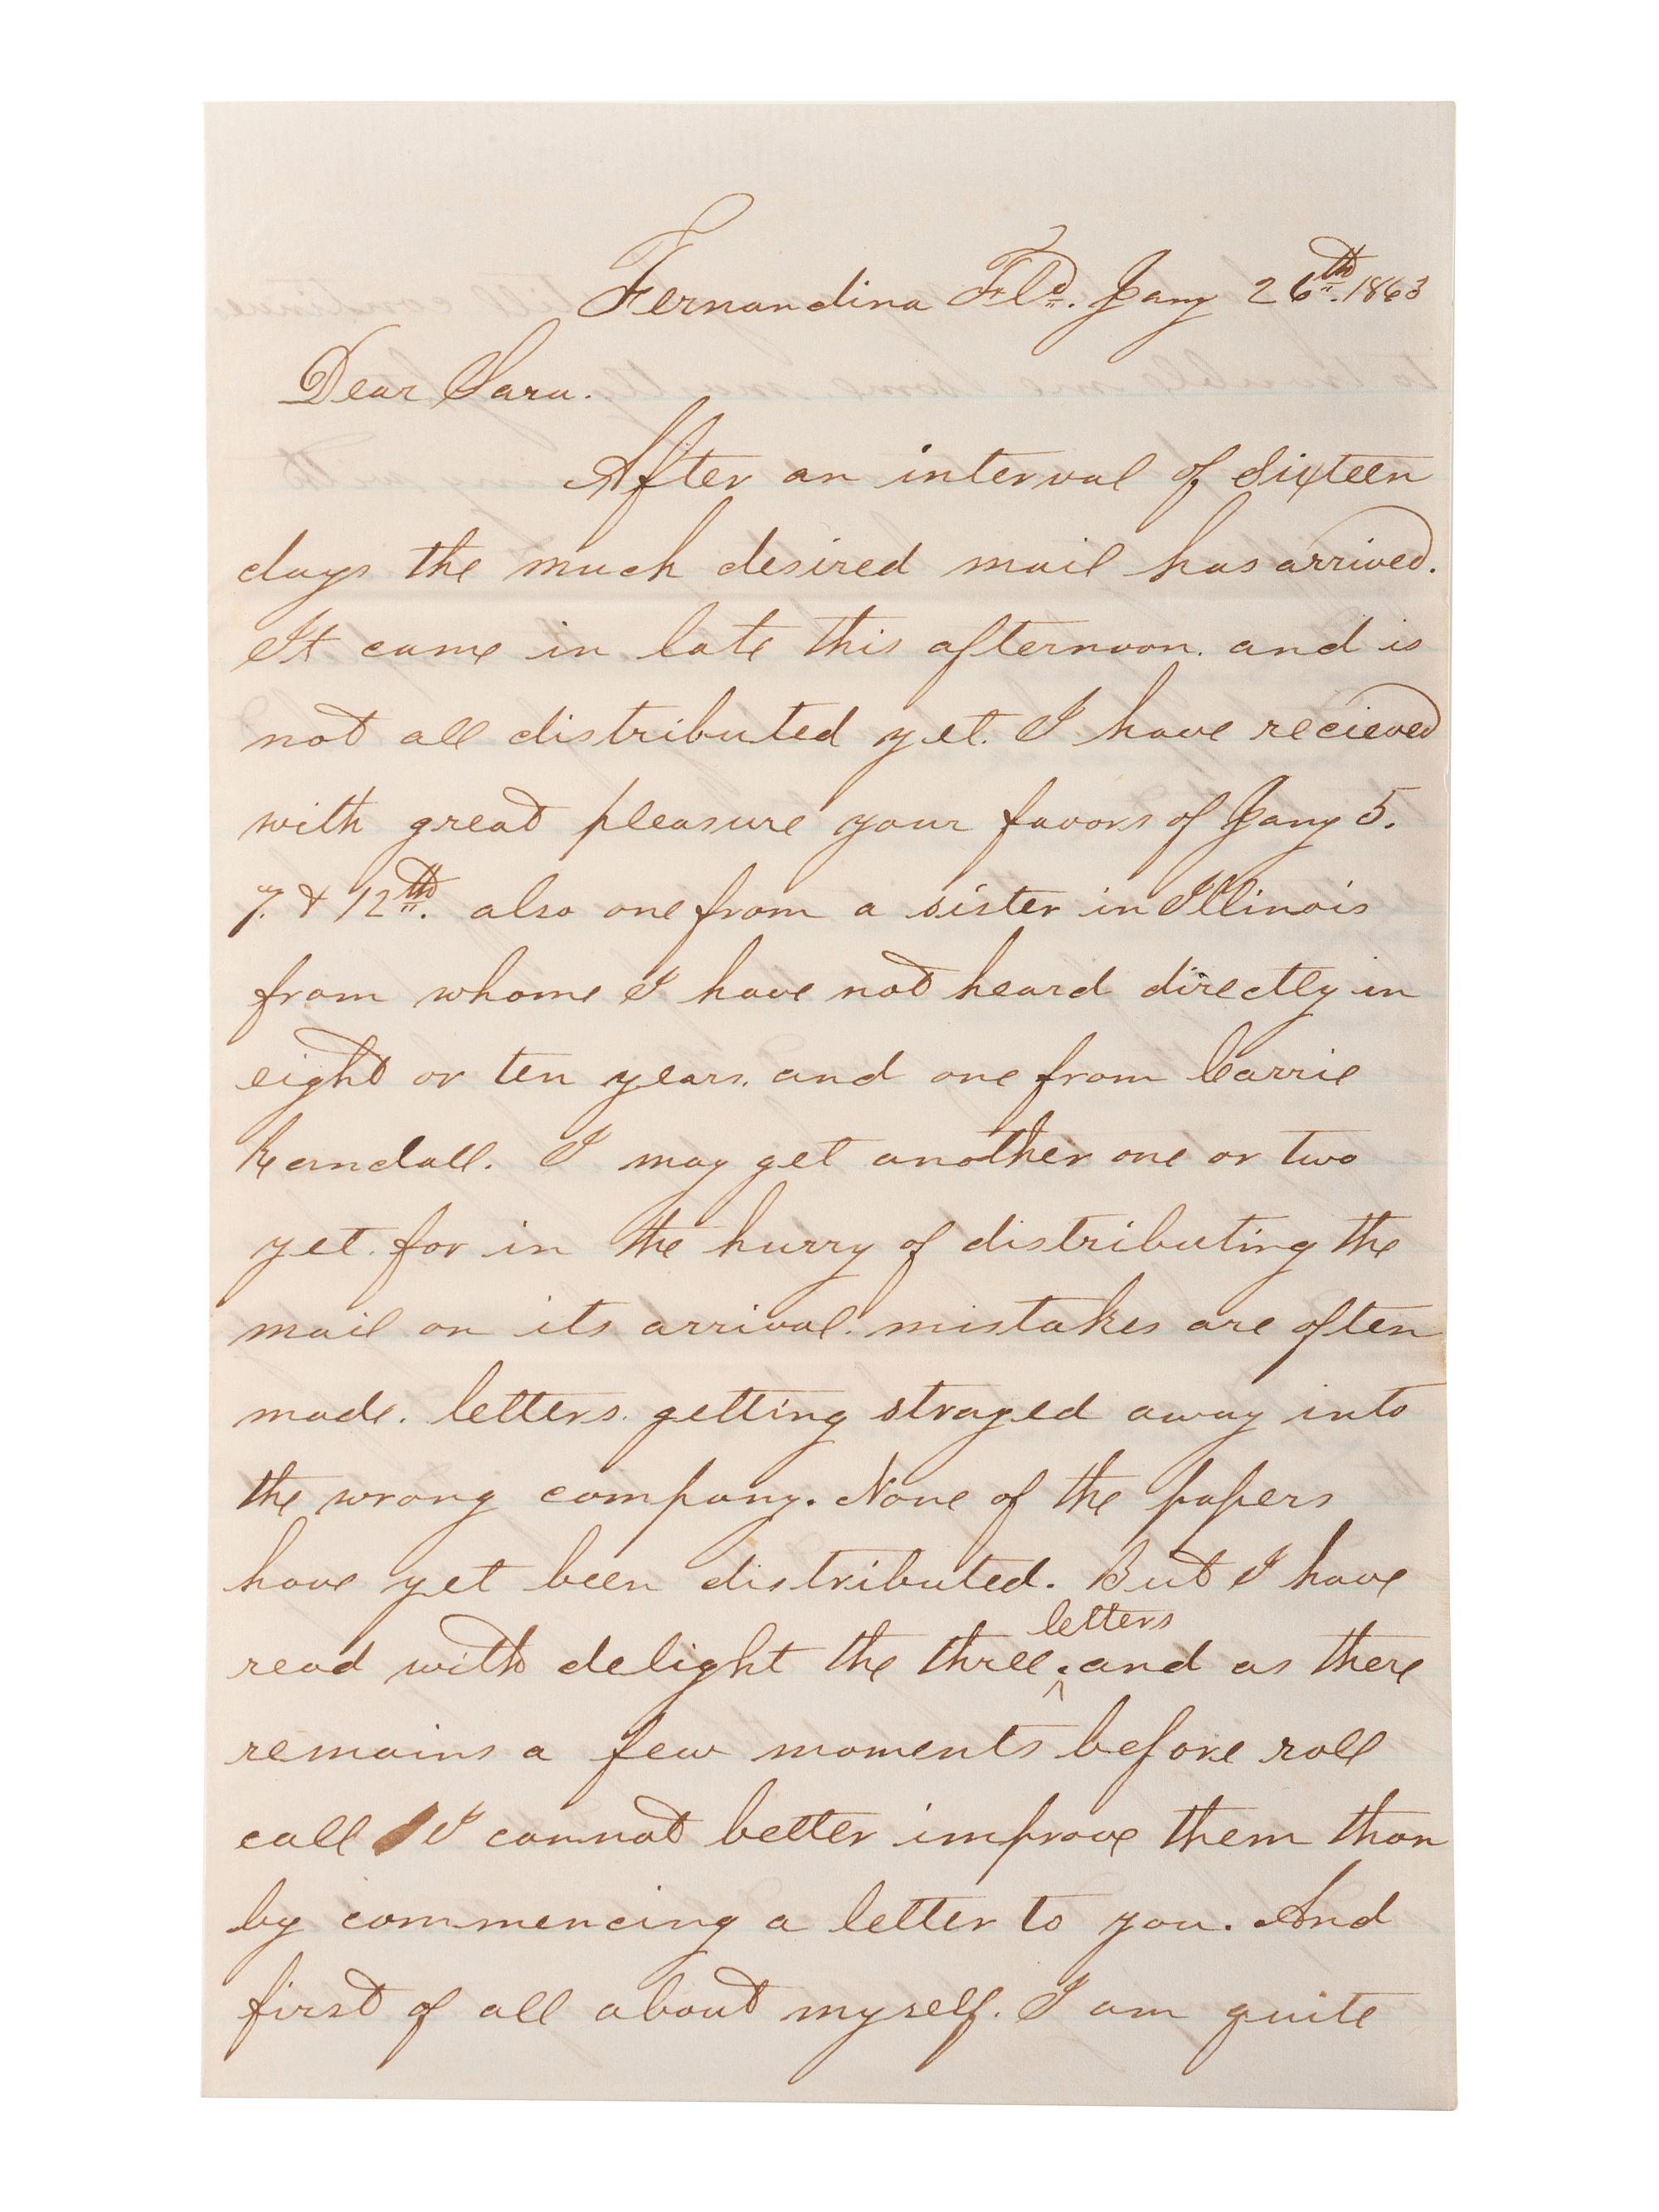 Fernandina Fld. Jany 26th. 1863
Dear Sara.
After an interval of sixteen
days the much desired mail has arrived.
It came in late this afternoon. and is
not all distributed yet. I have recieved
with great pleasure your favors of Jany 5.
7. & 12th. also one from a sister in Illinois
from whome I have not heard directly in
eight or ten years. and one from Carrie
Randall. I may get another one or two
yet. for in the hurry of distributing the
mail on its arrival. mistakes are often
made. letters. getting strayed away into
the wrong company. None of the papers
have yet been distributed. But I have
letters
read with delight the three ^. and as there
remains a few moments before roll
call I cannot better improve them than
by commencing a letter to you. And
first of all about myself. I am quite